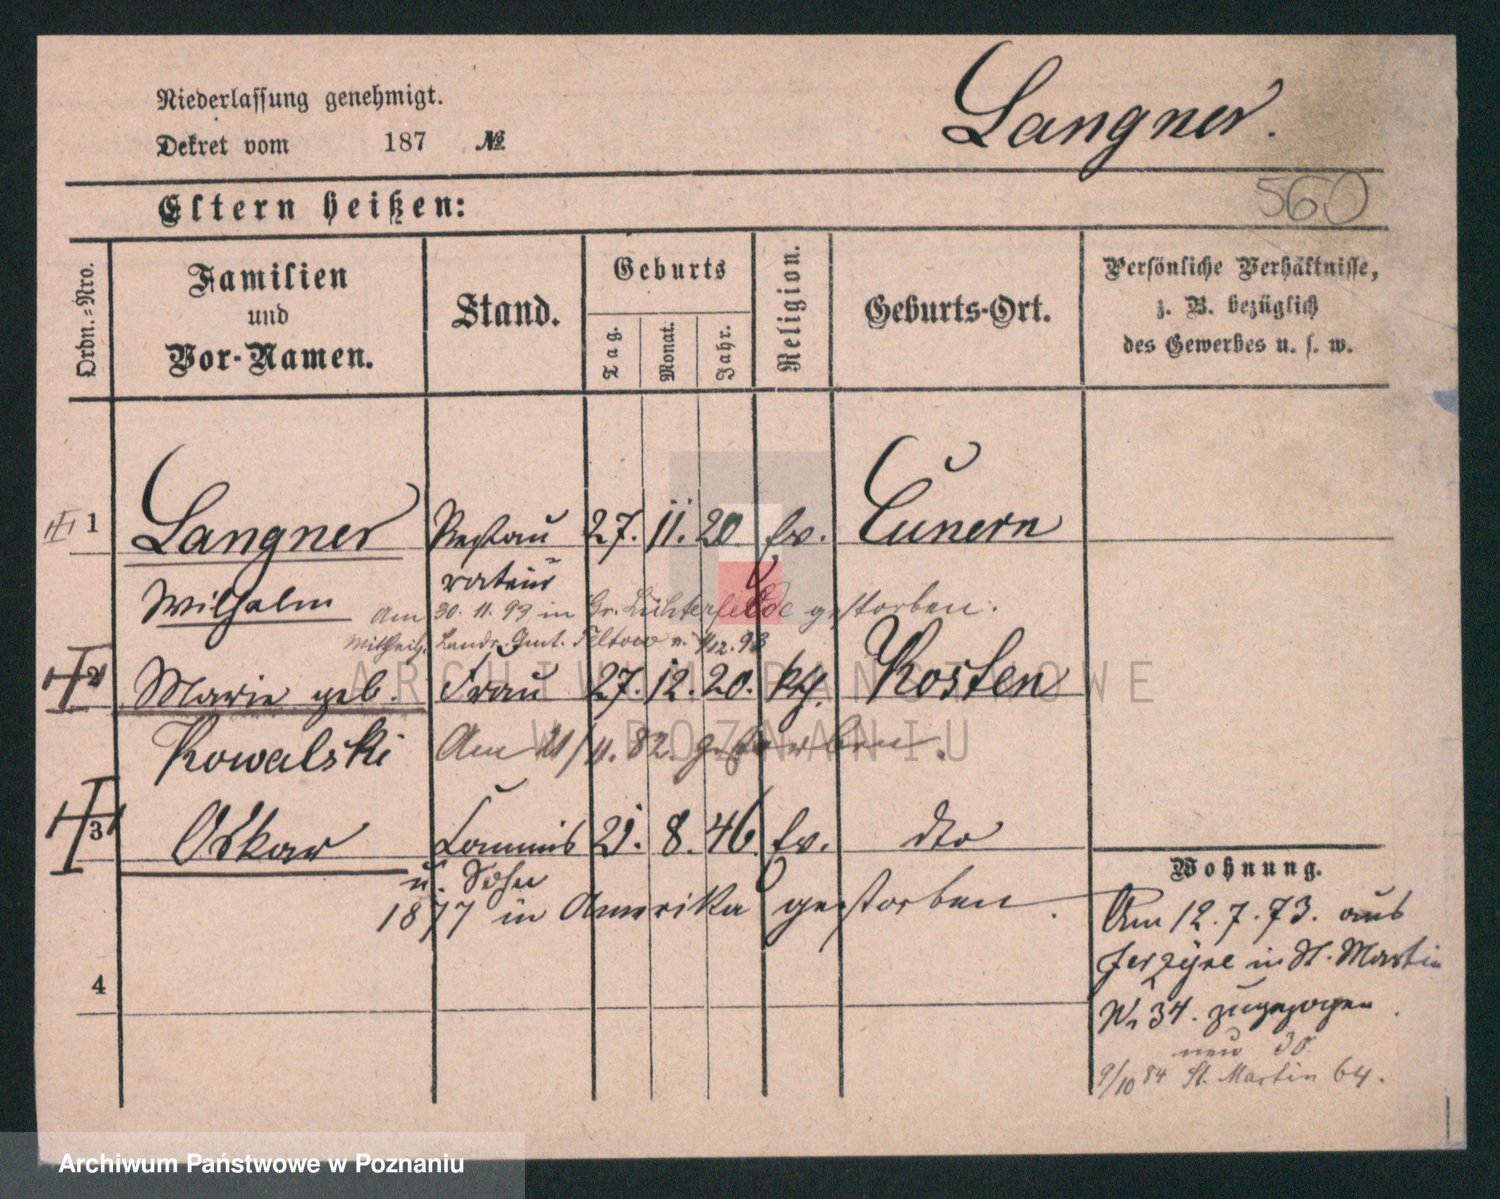 Niederlassung genehmigt.
Dekret vom 187 №
Langner.
560
Eltern heißen:
Ordn.-Nro.
Familien
und
Vor-Namen.
Stand.
Geburts
Tag.
Monat.
Jahr.
Religion.
Geburts-Ort.
Persönliche Verhältnisse,
z. B. bezüglich
des Gewerbes u. s. w.
1 Langner Restau 27. 11. 20. Ev. Cunern
Wilhelm rateur
am 30. 11. 93 in Gr. Lichterfelde gestorben.
Mittheilg. Landr. Amt. Teltow v. 4/12. 93
2 Marie geb. Frau 27. 12. 20. kth. Kosten
Kowalski Am 21/11. 82. gestorben.
3 Oskar Commis 21. 8. 46. Ev. dto
u. Sohn
1877 in Amerika gestorben.
4
Wohnung.
Am 12. 7. 73. aus
Jerzyce in St. Martin
Nr 34. zugezogen.
neu 30.
9/10 84 St. Martin 64.
ARCHIWUM PAŃSTWOWE
W POZNANIU
Archiwum Państwowe w Poznaniu